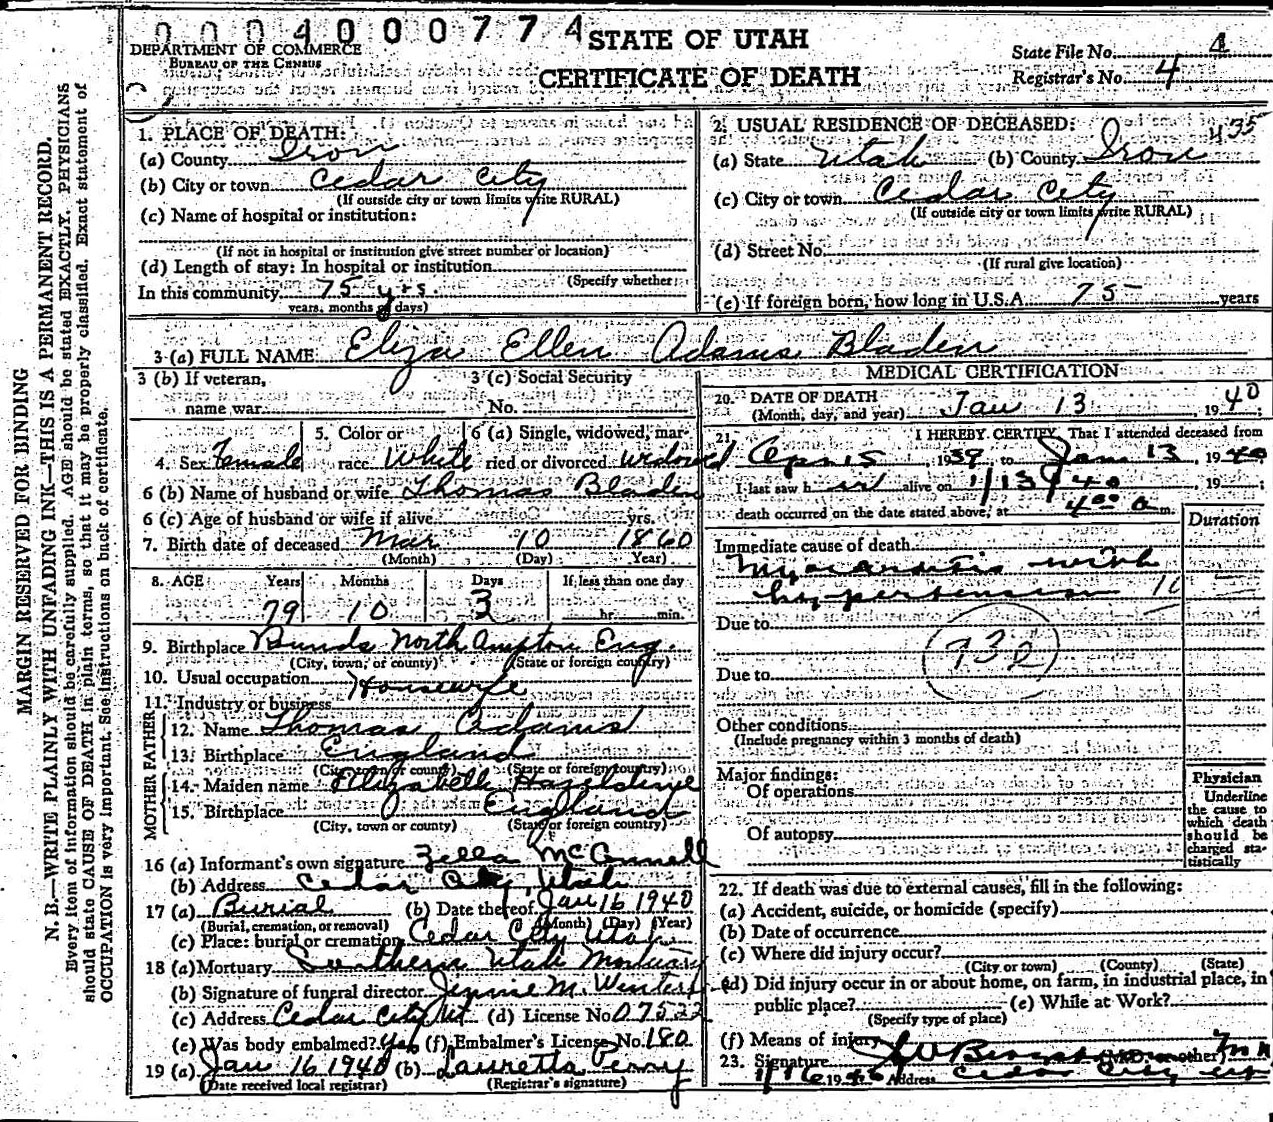 0 0 0 4 0 0 0 7 7 4
DEPARTMENT OF COMMERCE
BUREAU OF THE CENSUS
STATE OF UTAH
CERTIFICATE OF DEATH
State File No. 4
Registrar's No. 4
MARGIN RESERVED FOR BINDING
N. B.—WRITE PLAINLY WITH UNFADING INK—THIS IS A PERMANENT RECORD.
Every item of information should be carefully supplied. AGE should be stated EXACTLY. PHYSICIANS
should state CAUSE OF DEATH in plain terms, so that it may be properly classified. Exact statement of
OCCUPATION is very important. See instructions on back of certificate.
1. PLACE OF DEATH:
(a) County Iron
(b) City or town Cedar City
(If outside city or town limits write RURAL)
(c) Name of hospital or institution:
(If not in hospital or institution give street number or location)
(d) Length of stay: In hospital or institution
(Specify whether
In this community 75 yrs.
years, months or days)
2. USUAL RESIDENCE OF DECEASED: 435
(a) State Utah (b) County Iron
(c) City or town Cedar City
(If outside city or town limits write RURAL)
(d) Street No.
(If rural give location)
(e) If foreign born, how long in U.S.A. 75 years
3 (a) FULL NAME Eliza Ellen Adams Bladen
3 (b) If veteran,
name war
3 (c) Social Security
No.
4. Sex Female
5. Color or
race White
6 (a) Single, widowed, mar-
ried or divorced widowed
6 (b) Name of husband or wife Thomas Bladen
6 (c) Age of husband or wife if alive yrs.
7. Birth date of deceased Mar 10 1860
(Month) (Day) Year)
8. AGE Years Months Days If less than one day
79 10 3 hr. min.
9. Birthplace North Ampton Eng.
(City, town, or county) (State or foreign country)
10. Usual occupation Housewife
11. Industry or business
FATHER
12. Name Thomas Adams
13. Birthplace England
(City, town or county) (State or foreign country)
MOTHER
14. Maiden name Elizabeth
15. Birthplace England
(City, town or county) (State or foreign country)
16 (a) Informant's own signature Zella McConnell
(b) Address Cedar City, Utah
17 (a) Burial (b) Date thereof Jan 16 1940
(Burial, cremation, or removal) (Month) (Day) (Year)
(c) Place: burial or cremation Cedar City Utah
18 (a) Mortuary Southern Utah Mortuary
(b) Signature of funeral director Jennie M. Winters
(c) Address Cedar City Ut. (d) License No.
(e) Was body embalmed? Yes (f) Embalmer's License No. 180
19 (a) Jan 16 1940 (b) Lauretta Perry
(Date received local registrar) (Registrar's signature)
MEDICAL CERTIFICATION
20. DATE OF DEATH
(Month, day, and year) Jan 13, 1940;
21. I HEREBY CERTIFY, That I attended deceased from
1939 to Jan 13, 1940
I last saw her alive on 1/13/40, 19 ;
death occurred on the date stated above, at 4 00 a m.
Duration
Immediate cause of death
Myocarditis with
hypertension 10
Due to
93d
Due to
Other conditions
(Include pregnancy within 3 months of death)
Major findings:
Of operations
Of autopsy
Physician
Underline
the cause to
which death
should be
charged sta-
tistically
22. If death was due to external causes, fill in the following:
(a) Accident, suicide, or homicide (specify)
(b) Date of occurrence
(c) Where did injury occur?
(City or town) (County) (State)
(d) Did injury occur in or about home, on farm, in industrial place, in
public place? (e) While at Work?
(Specify type of place)
(f) Means of injury
23. Signature (M.D. or other)
Address Cedar City